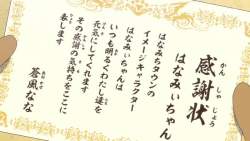 感謝状
かんしゃじょう
はなみぃちゃん
はなみちタウンの
イメージキャラクター
はなみぃちゃんは
いつも明るくわたし達を
元気にしてくれます
その感謝の気持ちをここに
表します
蒼風なな